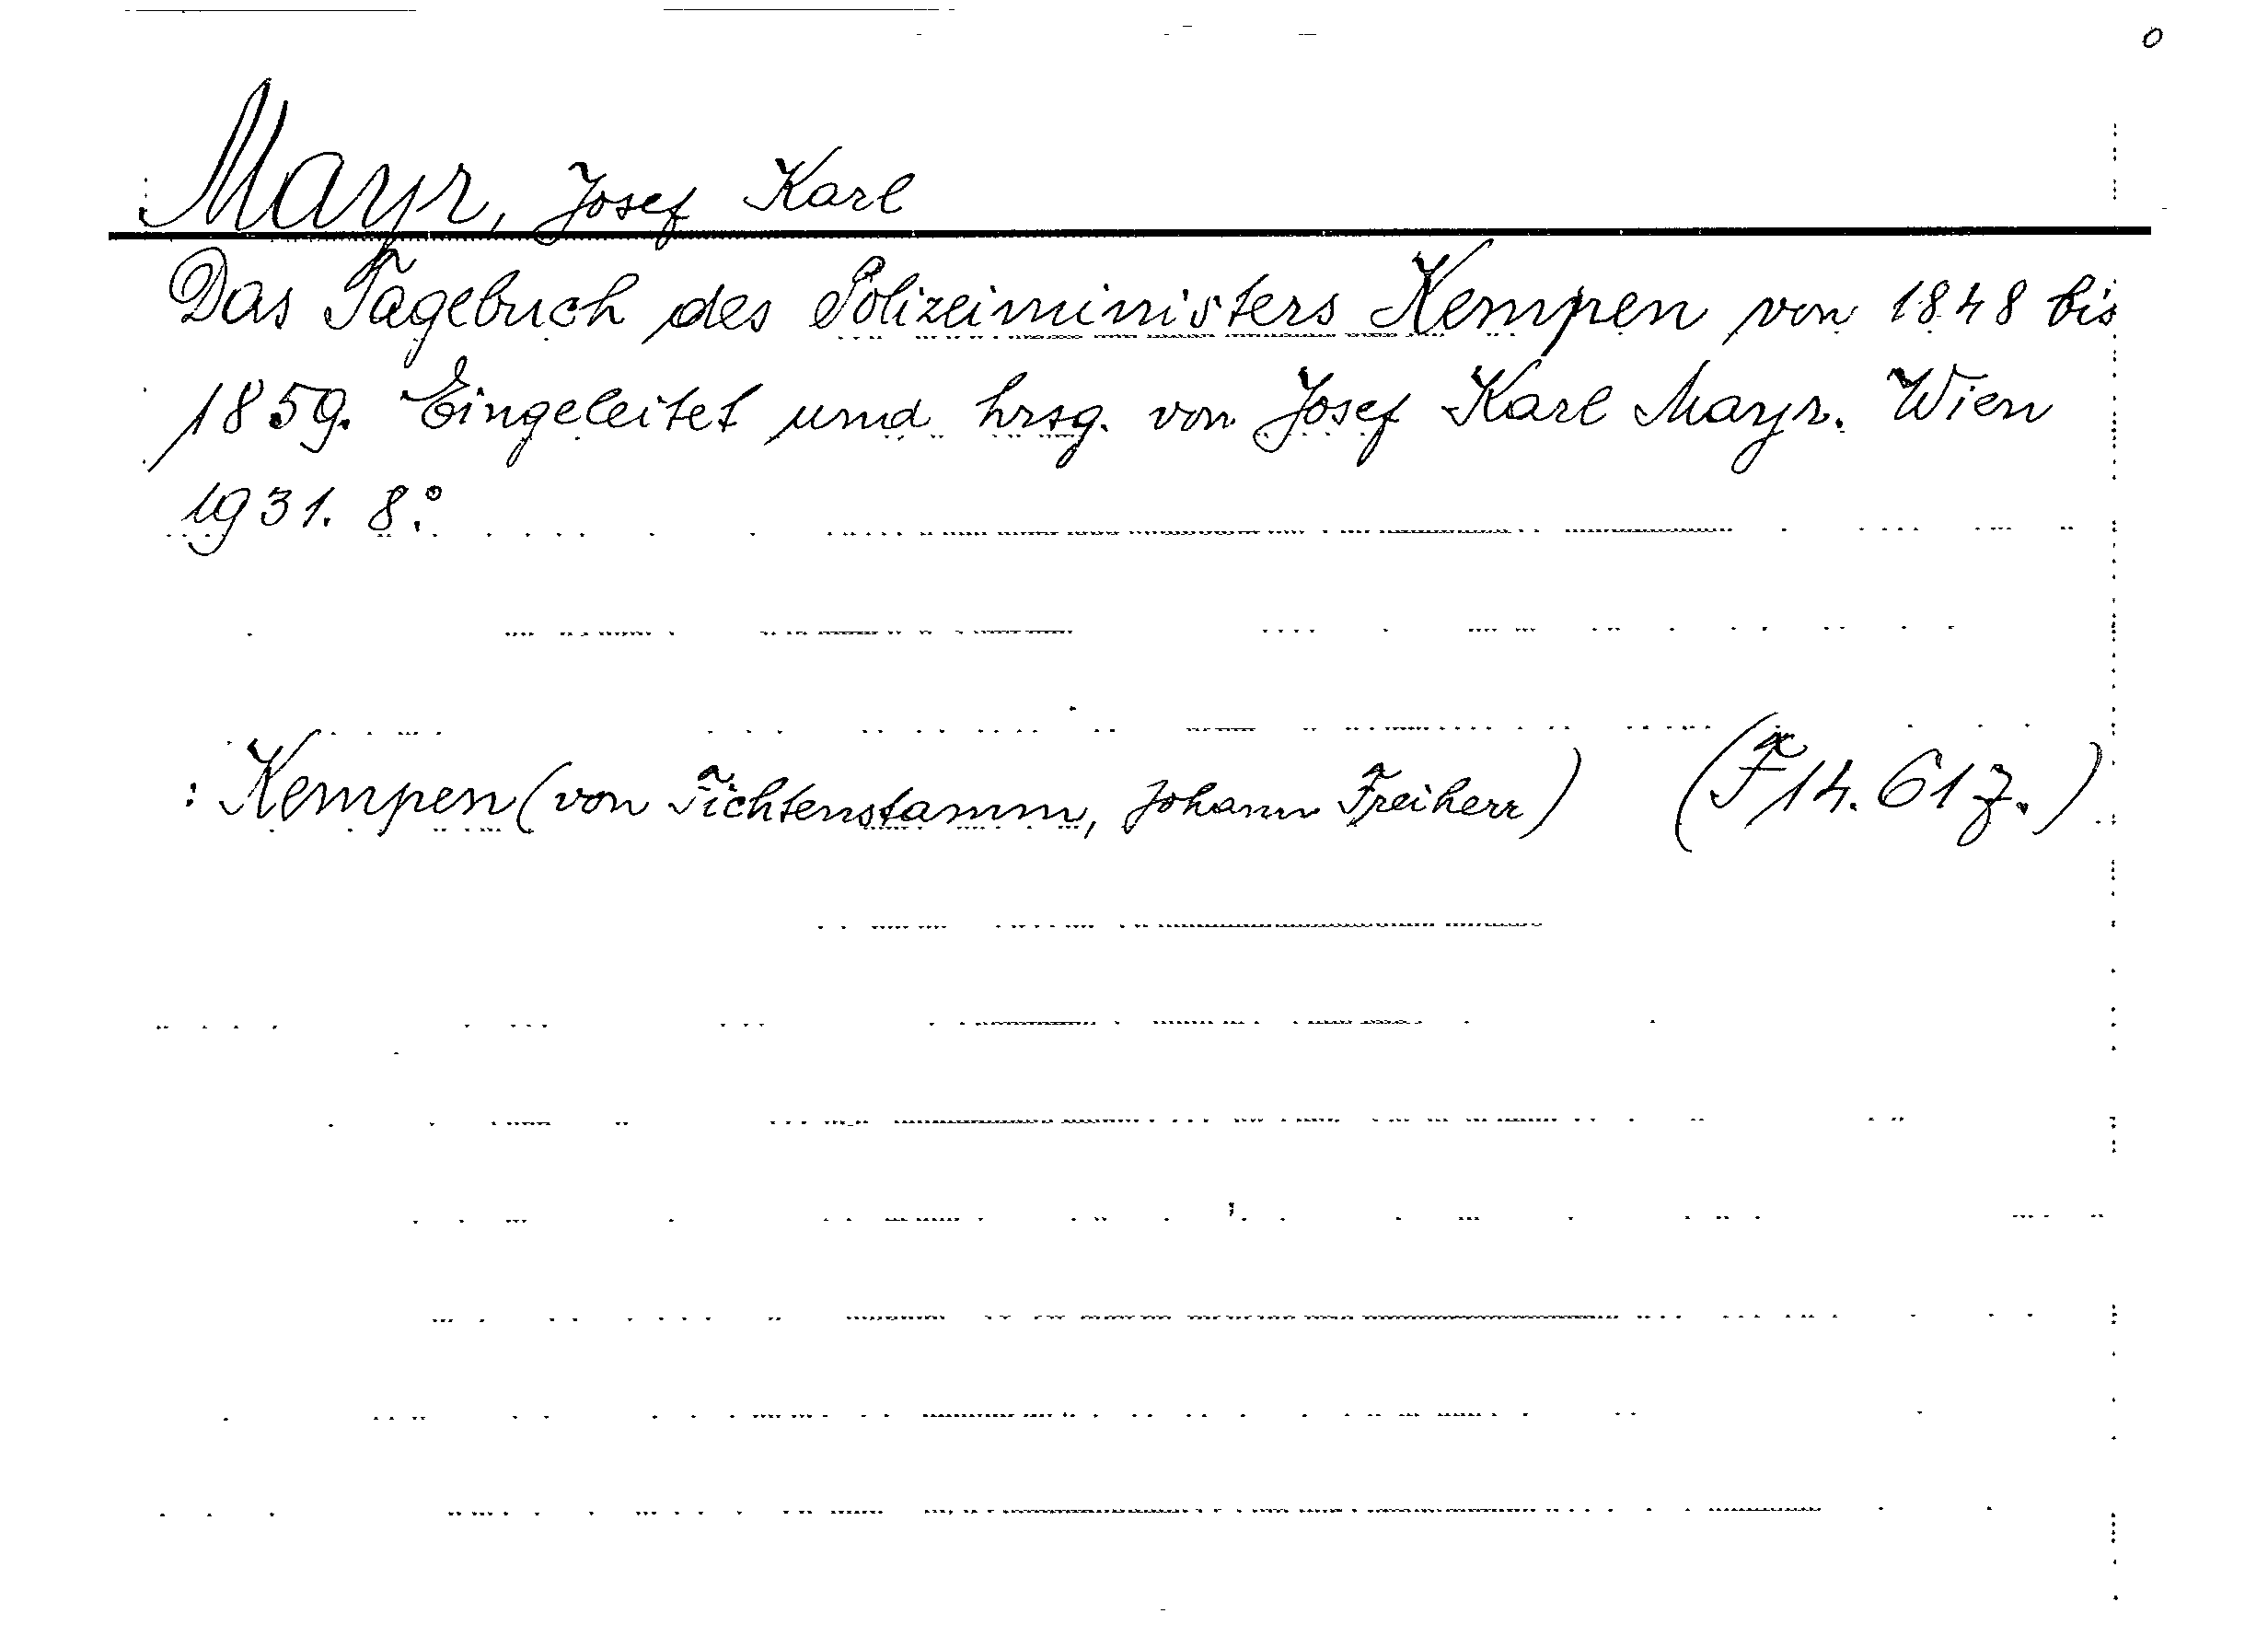 o
Mayr, Josef Karl
Das Tagebuch des Polizeiministers Kempen von 1848 bis
1859. Eingeleitet und hrsg. von Josef Karl Mayr. Wien
1931. 8.°
: Kempen (von Fichtenstamm, Johann Freiherr) (F 14.617.)